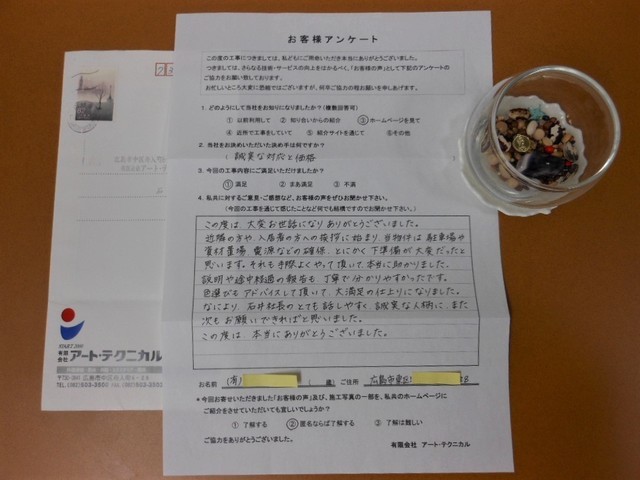 お客様アンケート
この度の工事につきましては、私どもにご用命いただき本当にありがとうございました。
つきましては、さらなる技術・サービスの向上をはかるべく、「お客様の声」として下記のアンケートの
ご協力をお願い致しております。
お忙しいところ大変に恐縮ではございますが、何卒ご協力の程お願いを申しあげます。
1. どのようにして当社をお知りになりましたか？（複数回答可）
① 以前利用して ② 知り合いからの紹介 ③ ホームページを見て
④ 近所で工事をしていて ⑤ 紹介サイトを通じて ⑥その他
2. 当社をお決めいただいた決め手は何ですか？
誠実な対応と価格
3. 今回の工事内容にご満足いただけましたか？
① 満足 ② まあ満足 ③ 不満
4. 私共に対するご意見・ご感想など、お客様の声をぜひお聞かせ下さい。
（今回の工事を通じて感じたことなど何でも結構ですのでお聞かせ下さい。）
この度は、大変お世話になりありがとうございました。
近隣の方や、入居者の方への挨拶に始まり、当物件は駐車場や
資材置場、電源などの確保、とにかく下準備が大変だったと
思います。それも手際よくやって頂いて、本当に助かりました。
説明や途中経過の報告も、丁寧で分かりやすかったです。
色選びもアドバイスして頂いて、大満足の仕上りになりました。
なにより、石井社長のとても話しやすく、誠実な人柄に、また
次もお願いできればと思いました。
この度は、本当にありがとうございました。
お名前 (有) 歳） ご住所 広島市東区
＊今回お寄せいただきました「お客様の声」及び、施工写真の一部を、私共のホームページに
ご紹介をさせていただいても宜しいでしょうか？
① 了解する ② 匿名ならば了解する ③ 了解は難しい
ご協力をありがとうございました。
有限会社 アート・テクニカル
START 2001
有限会社 アート・テクニカル